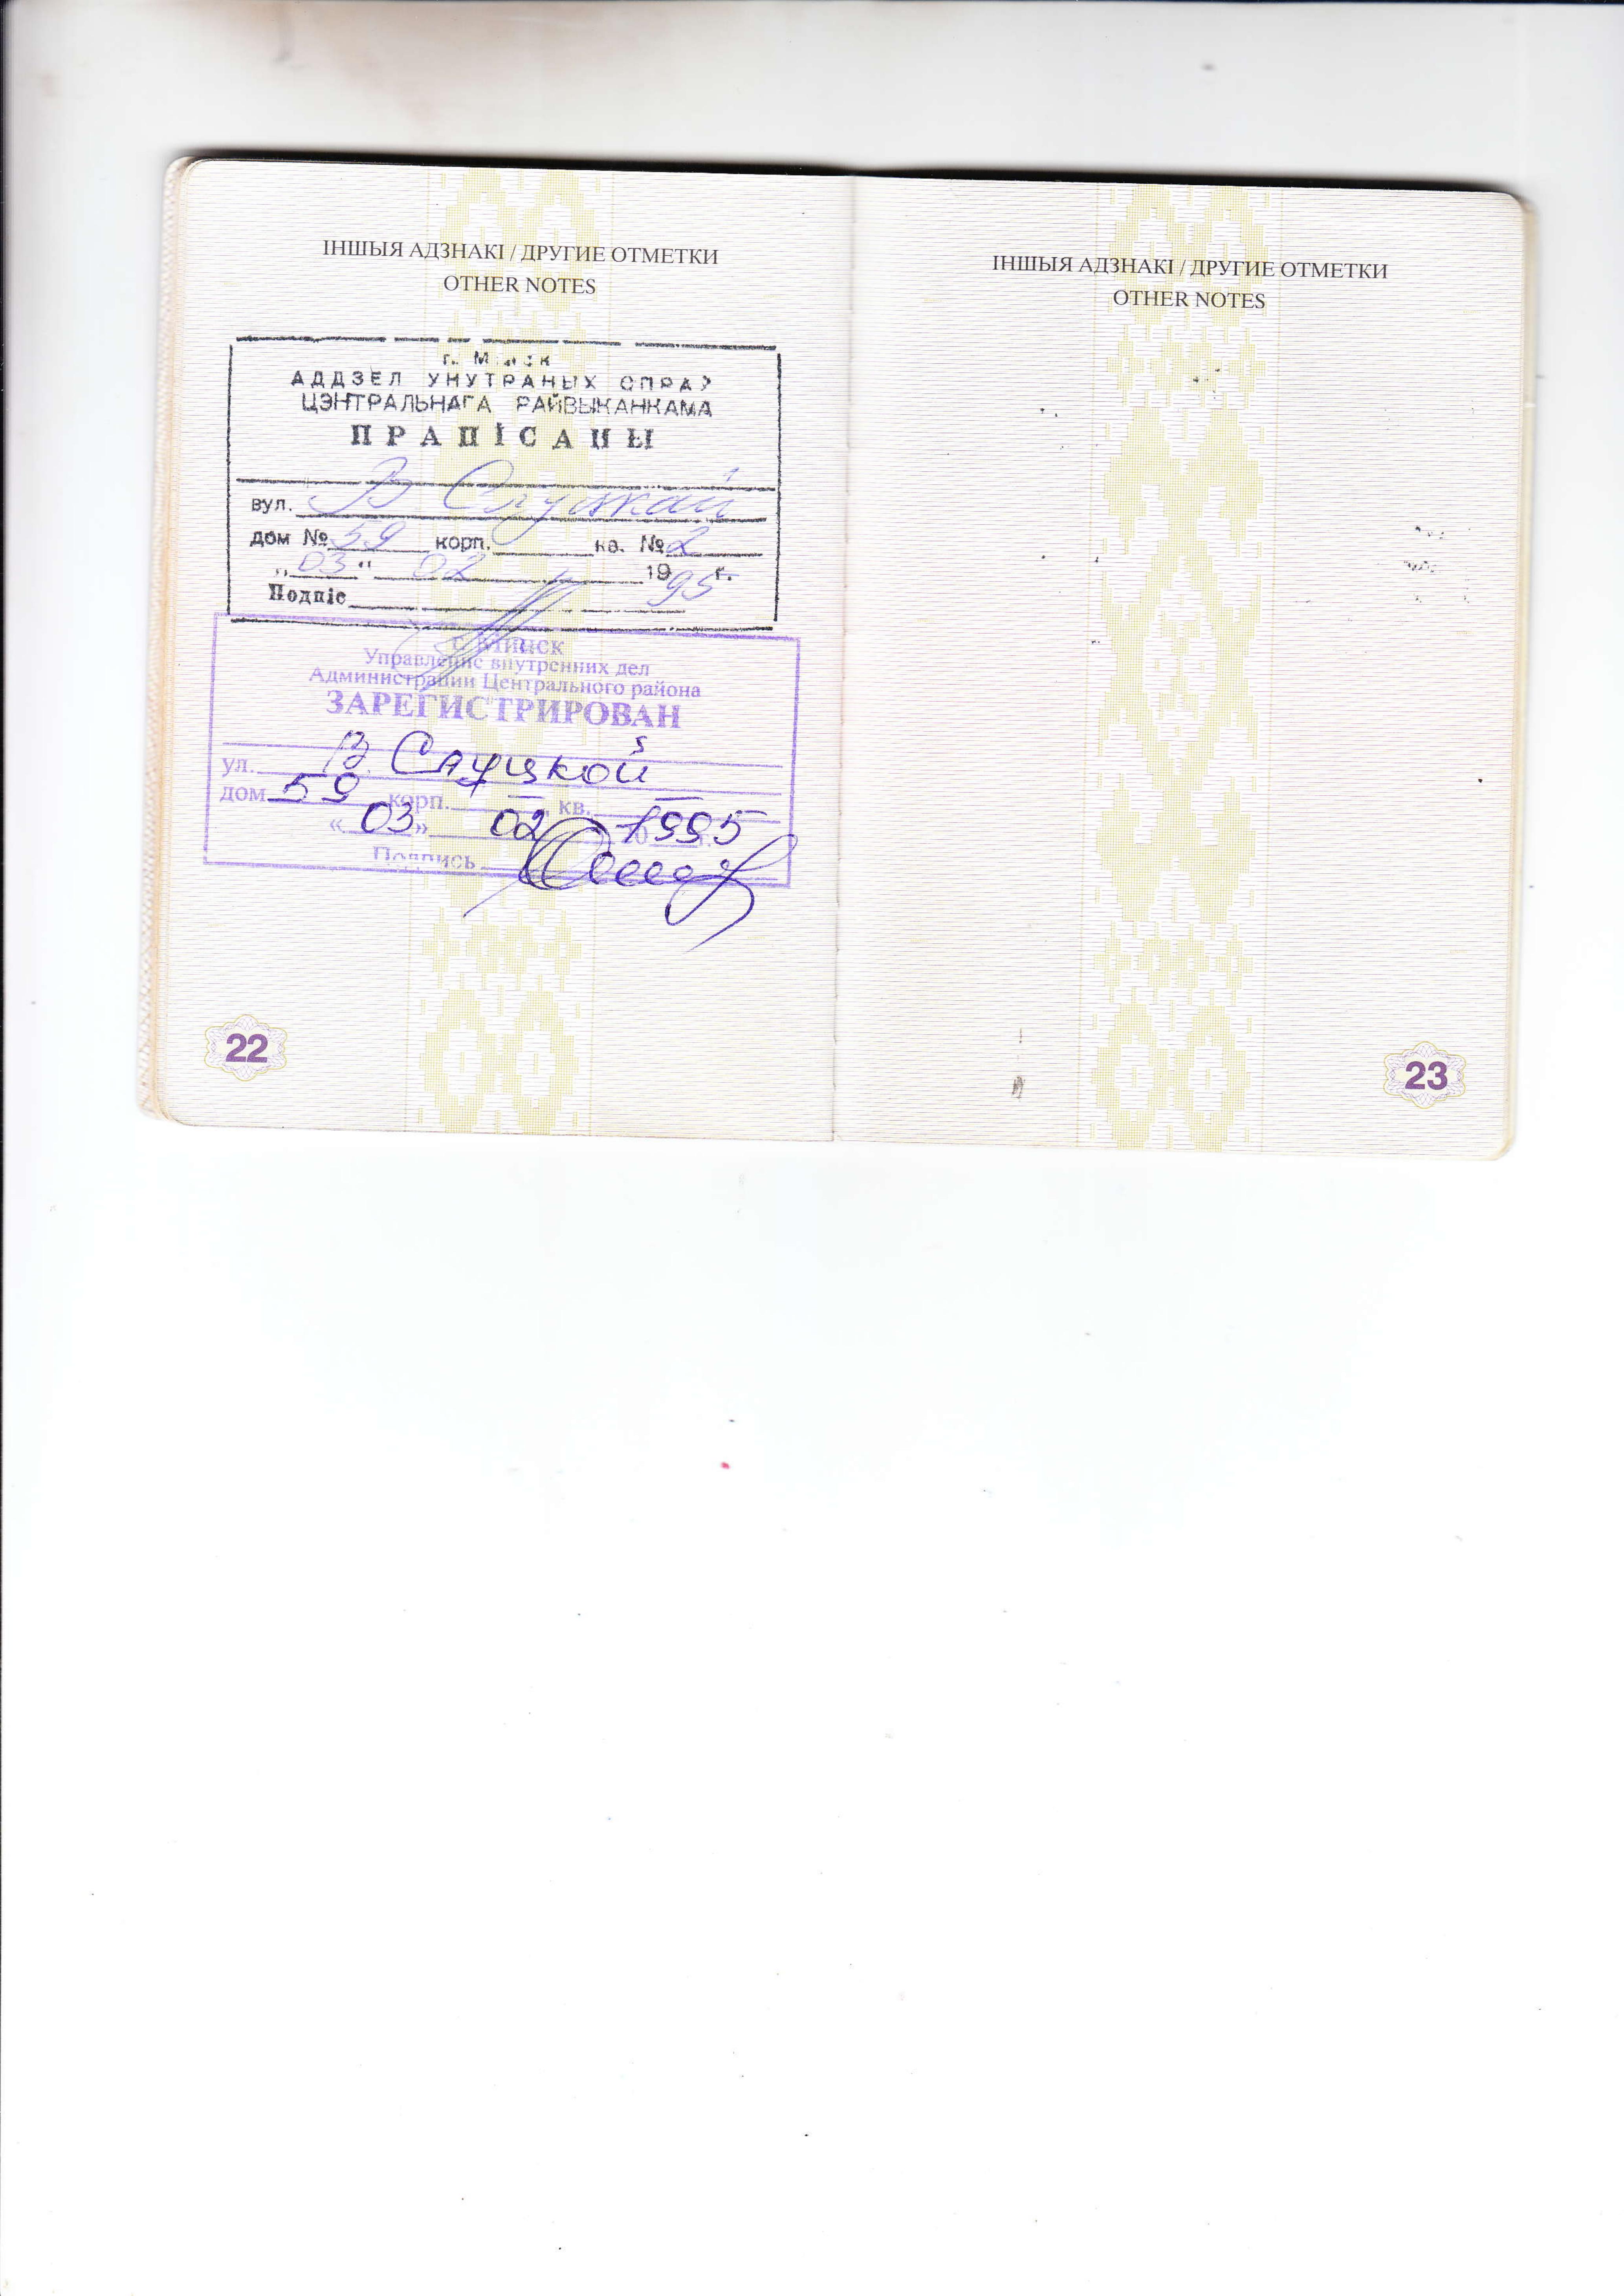 ІНШЫЯ АДЗНАКІ / ДРУГИЕ ОТМЕТКИ
OTHER NOTES
г. Мінск
АДДЗЕЛ УНУТРАНЫХ СПРАЎ
ЦЭНТРАЛЬНАГА РАЙВЫКАНКАМА
ПРАПІСАНЫ
вул. В Слуцкай
дом № 59 корп. кв. № 2
„03“ 02 1995 г.
Подпіс
г. МИНСК
Управление внутренних дел
Администрации Центрального района
ЗАРЕГИСТРИРОВАН
ул. В. Слуцкой
дом 59 корп. – кв. –
«03» 02 1995
Подпись
22
ІНШЫЯ АДЗНАКІ / ДРУГИЕ ОТМЕТКИ
OTHER NOTES
23